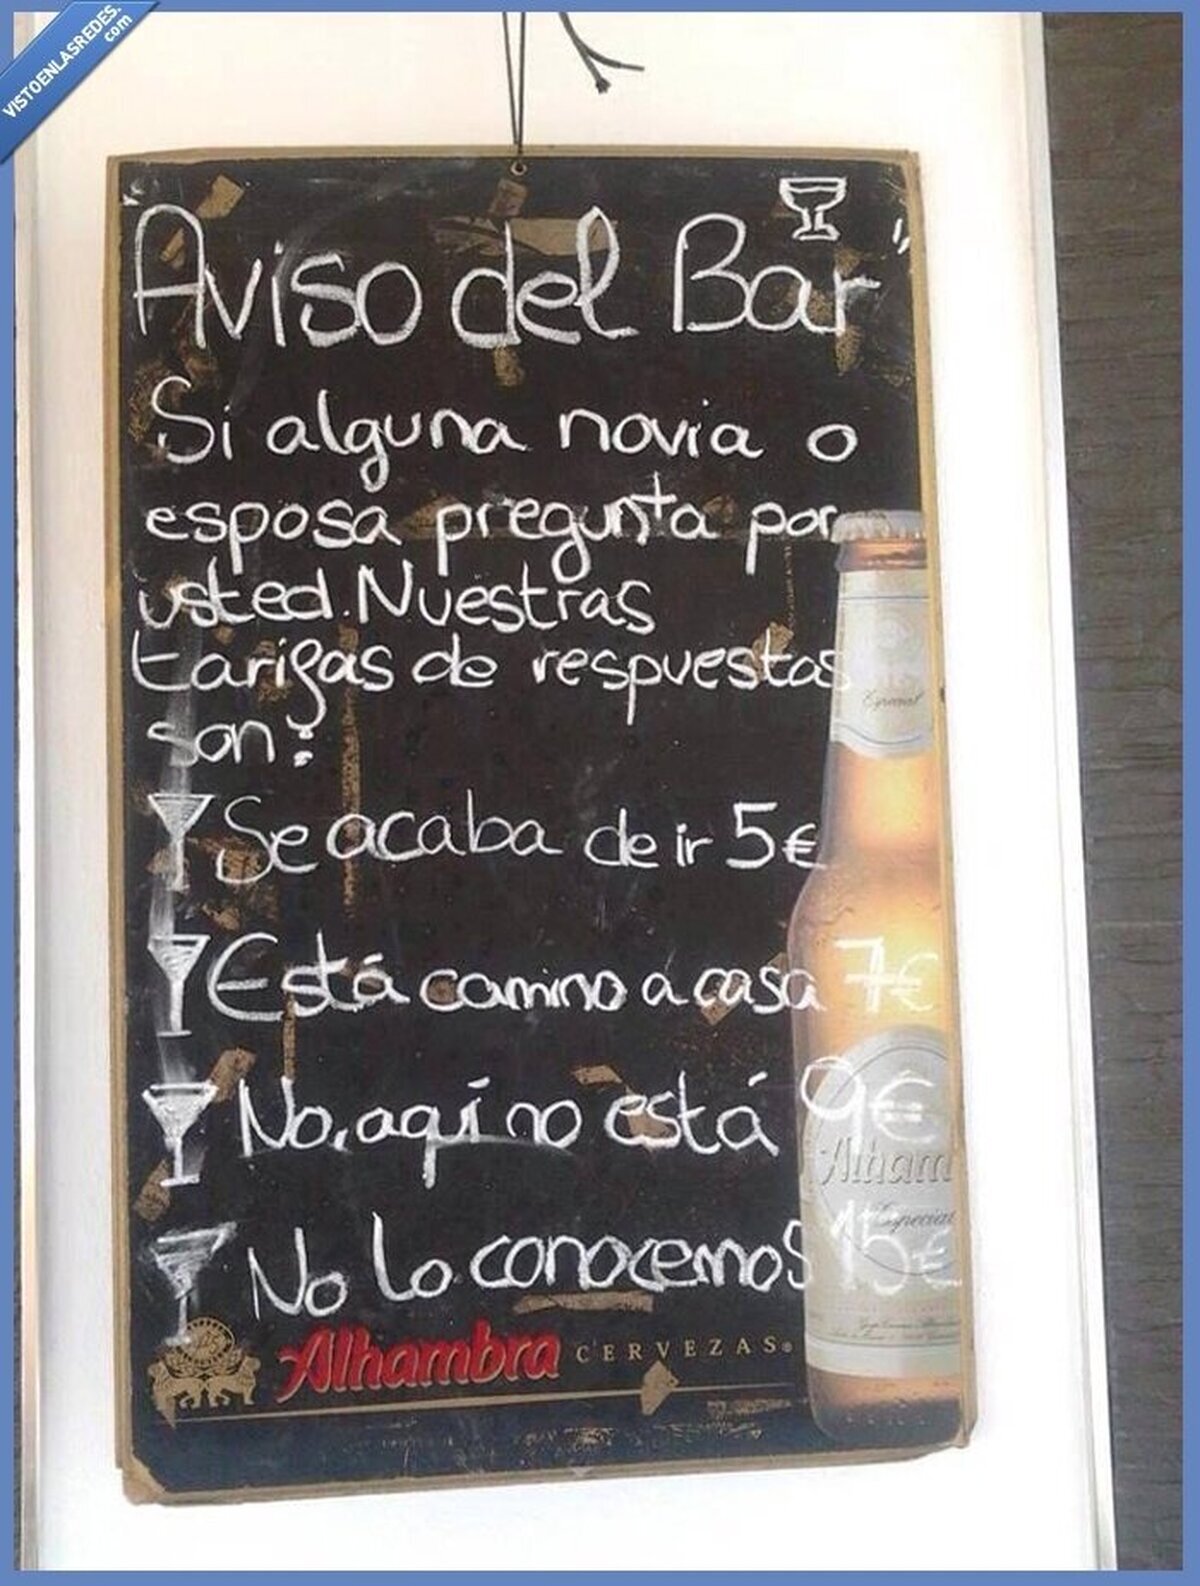 VISTOENLASREDES.
com
"Aviso del Bar"
Si alguna novia o
esposa pregunta por
usted. Nuestras
tarifas de respuestas
son:
Se acaba de ir 5€
Está camino a casa 7€
No, aquí no está 9€
No lo conocemos 15€
Especial
Alham
Especial
Alhambra CERVEZAS®